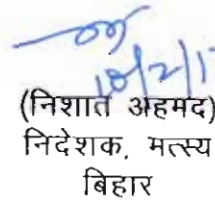 (निशात अहमद)
निदेशक, मत्स्य
बिहार